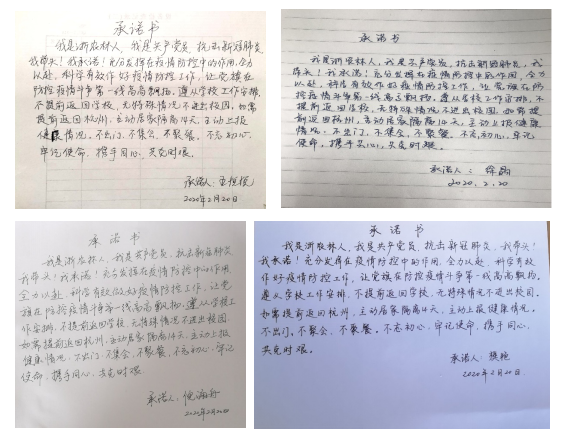 承诺书
我是浙农林人，我是共产党员，抗击新冠肺炎，
我带头！我承诺！充分发挥在疫情防控中的作用，全力
以赴，科学有效作好疫情防控工作，让党旗在
防控疫情斗争第一线高高飘扬。遵从学校工作安排，
不提前返回学校，无特殊情况不进出校园，如需
提前返回杭州，主动居家隔离14天，主动上报
健康情况。不出门、不集会、不聚餐。不忘初心，
牢记使命，携手同心，共克时艰。
承诺人：
2020年2月20日
承诺书
我是浙农林人，我是共产党员，抗击新冠肺炎，我
带头！我承诺！充分发挥在疫情防控中的作用，全力
以赴，科学有效作好疫情防控工作，让党旗在防
控疫情斗争第一线高高飘扬。遵从学校工作安排，不
提前返回学校，无特殊情况不进出校园。如需提
前返回杭州，主动居家隔离14天，主动上报健康
情况。不出门、不集会、不聚餐。不忘初心，牢记
使命，携手同心，共克时艰。
承诺人：徐
2020.2.20
承诺书
我是浙农林人，我是共产党员，抗击新冠肺炎，
我带头！我承诺！充分发挥在疫情防控中的作用，
全力以赴，科学有效做好疫情防控工作，让党
旗在防控疫情斗争第一线高高飘扬。遵从学校工
作安排，不提前返回学校，无特殊情况不进出校园。
如需提前返回杭州，主动居家隔离14天，主动上报
健康情况。不出门、不集会、不聚餐，不忘初心，牢记
使命，携手同心，共克时艰
承诺人：倪海舟
2020年2月20日
承诺书
我是浙农林人，我是共产党员，抗击新冠肺炎，我带头！
我承诺！充分发挥在疫情防控中的作用，全力以赴，科学有效
作好疫情防控工作，让党旗在防控疫情斗争第一线高高飘扬。
遵从学校工作安排，不提前返回学校，无特殊情况不进出校园。
如需提前返回杭州，主动居家隔离14天，主动上报健康情况。
不出门、不聚会、不聚餐。不忘初心，牢记使命，携手同心，
共克时艰。
承诺人：
2020年2月20日